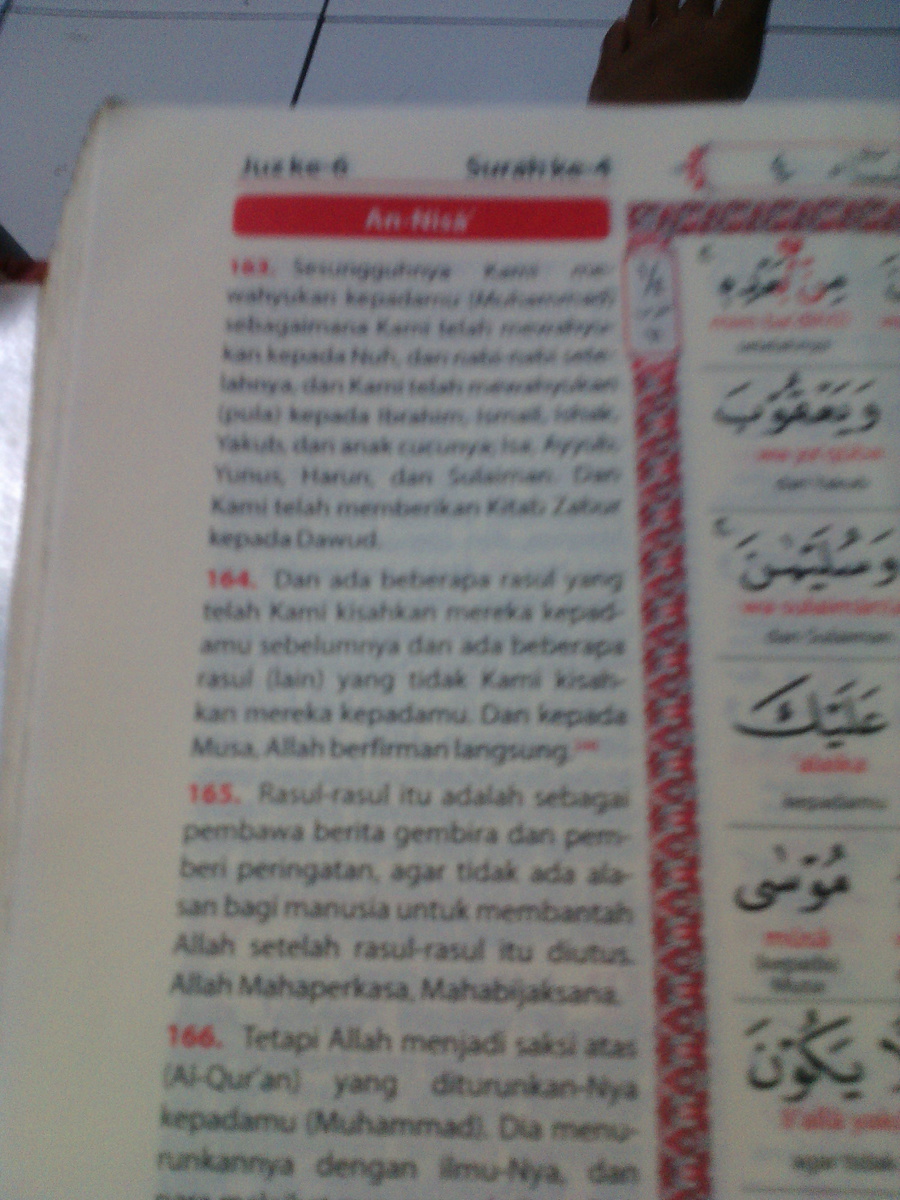 Juz ke-6 Surah ke-4
An-Nisā'
163. Sesungguhnya Kami me-
wahyukan kepadamu (Muhammad)
sebagaimana Kami telah mewahyu-
kan kepada Nuh, dan nabi-nabi sete-
lahnya, dan Kami telah mewahyukan
(pula) kepada Ibrahim, Ismail, Ishak,
Yakub, dan anak cucunya; Isa, Ayyub,
Yunus, Harun, dan Sulaiman. Dan
Kami telah memberikan Kitab Zabur
kepada Dawud.
164. Dan ada beberapa rasul yang
telah Kami kisahkan mereka kepad-
amu sebelumnya dan ada beberapa
rasul (lain) yang tidak Kami kisah-
kan mereka kepadamu. Dan kepada
Musa, Allah berfirman langsung.
165. Rasul-rasul itu adalah sebagai
pembawa berita gembira dan pem-
beri peringatan, agar tidak ada ala-
san bagi manusia untuk membantah
Allah setelah rasul-rasul itu diutus.
Allah Mahaperkasa, Mahabijaksana.
166. Tetapi Allah menjadi saksi atas
(Al-Qur'an) yang diturunkan-Nya
kepadamu (Muhammad). Dia menu-
runkannya dengan ilmu-Nya, dan
مِنْ بَعْدِهٖ
وَيَعْقُوْبَ
dan Yakub
وَسُلَيْمٰنَ
wa sulaimāna
dan Sulaiman
عَلَيْكَ
'alaika
kepadamu
مُوْسٰى
mūsā
kepada
Musa
يَكُوْنَ
agar tidak